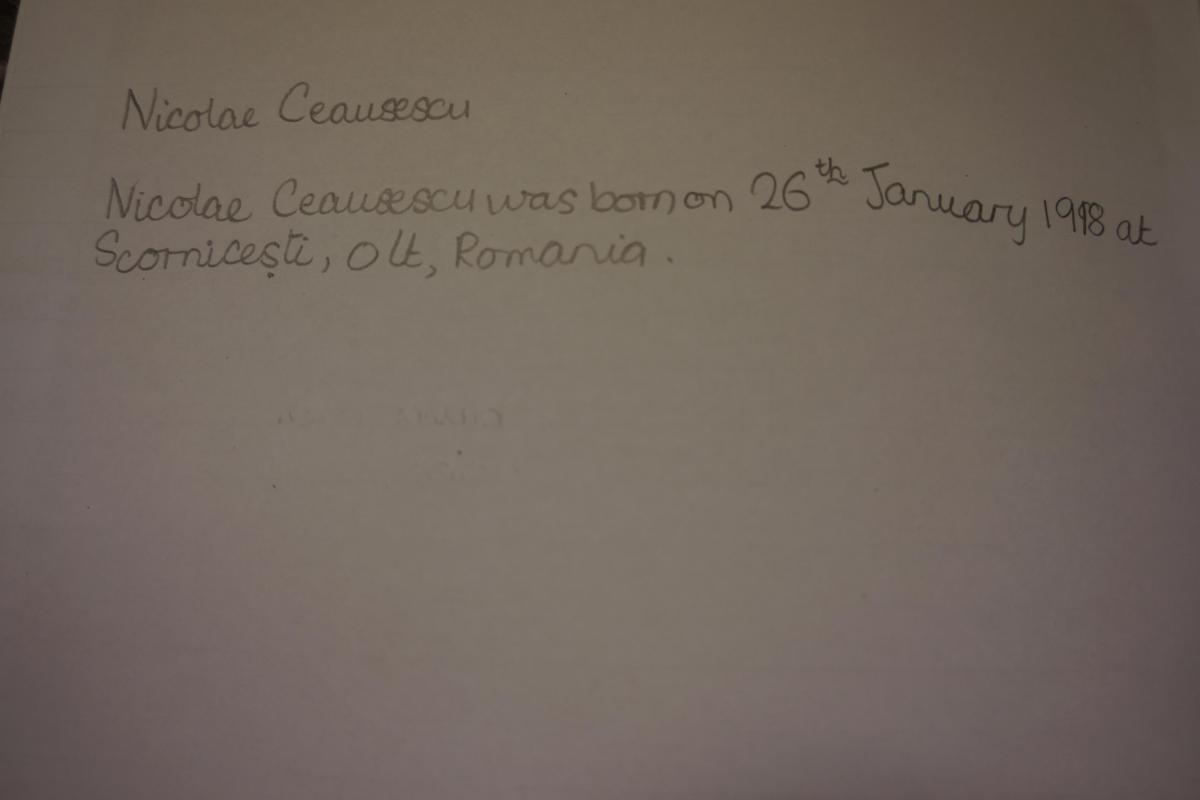 Nicolae Ceausescu
Nicolae Ceausescu was born on 26th January 1918 at
Scornicești, Olt, Romania.